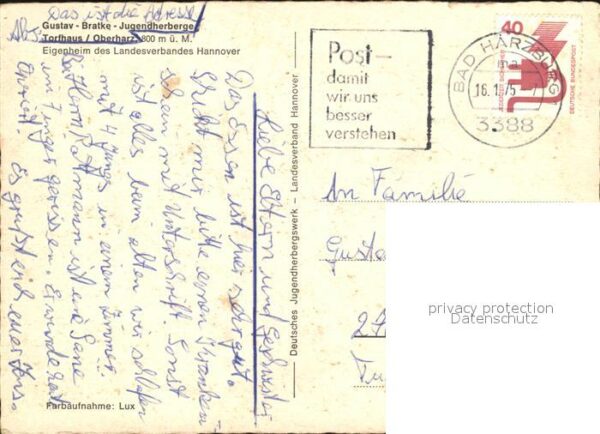 Das ist die Adresse
Abs.
Gustav - Bratke - Jugendherberge
Torfhaus / Oberharz, 800 m ü. M.
Eigenheim des Landesverbandes Hannover
Liebe Eltern und Geschwister
Das Essen ist hier sehr gut.
Schickt mir bitte einen Kranken-
schein mit Unterschrift. Sonst
ist alles beim alten wir schlafen
mit 4 Jungs in einem Zimmer
ist eine Säge
im Finger gerissen. Er wurde
Es grüßt euch euer
Farbaufnahme: Lux
Deutsches Jugendherbergswerk – Landesverband Hannover
Post –
damit
wir uns
besser
verstehen
BAD HARZBURG
16.1.75
3388
40
DEUTSCHE BUNDESPOST
An Familie
Gusta
27
privacy protection
Datenschutz